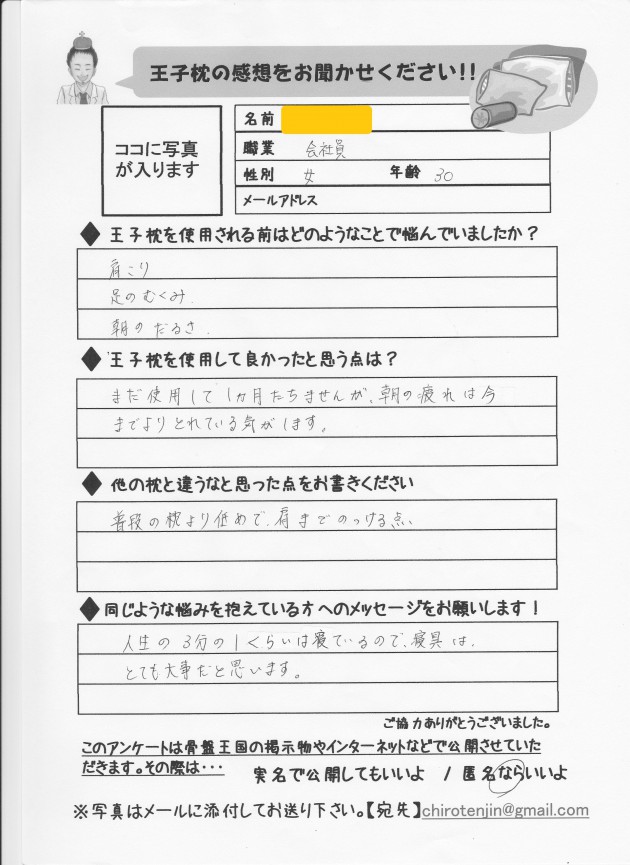 王子枕の感想をお聞かせください!!
ココに写真
が入ります
名前
職業 会社員
性別 女 年齢 30
メールアドレス
◆ 王子枕を使用される前はどのようなことで悩んでいましたか？
肩こり
足のむくみ.
朝のだるさ.
◆ 王子枕を使用して良かったと思う点は？
まだ使用して1カ月たちませんが、朝の疲れは今
までよりとれている気がします。
◆ 他の枕と違うなと思った点をお書きください
普段の枕より低めで、肩までのっける点、
◆ 同じような悩みを抱えている方へのメッセージをお願いします！
人生の3分の1くらいは寝ているので、寝具は、
とても大事だと思います。
ご協力ありがとうございました。
このアンケートは骨盤王国の掲示物やインターネットなどで公開させていた
だきます。その際は・・・ 実名で公開してもいいよ / 匿名ならいいよ
※写真はメールに添付してお送り下さい。【宛先】chirotenjin@gmail.com